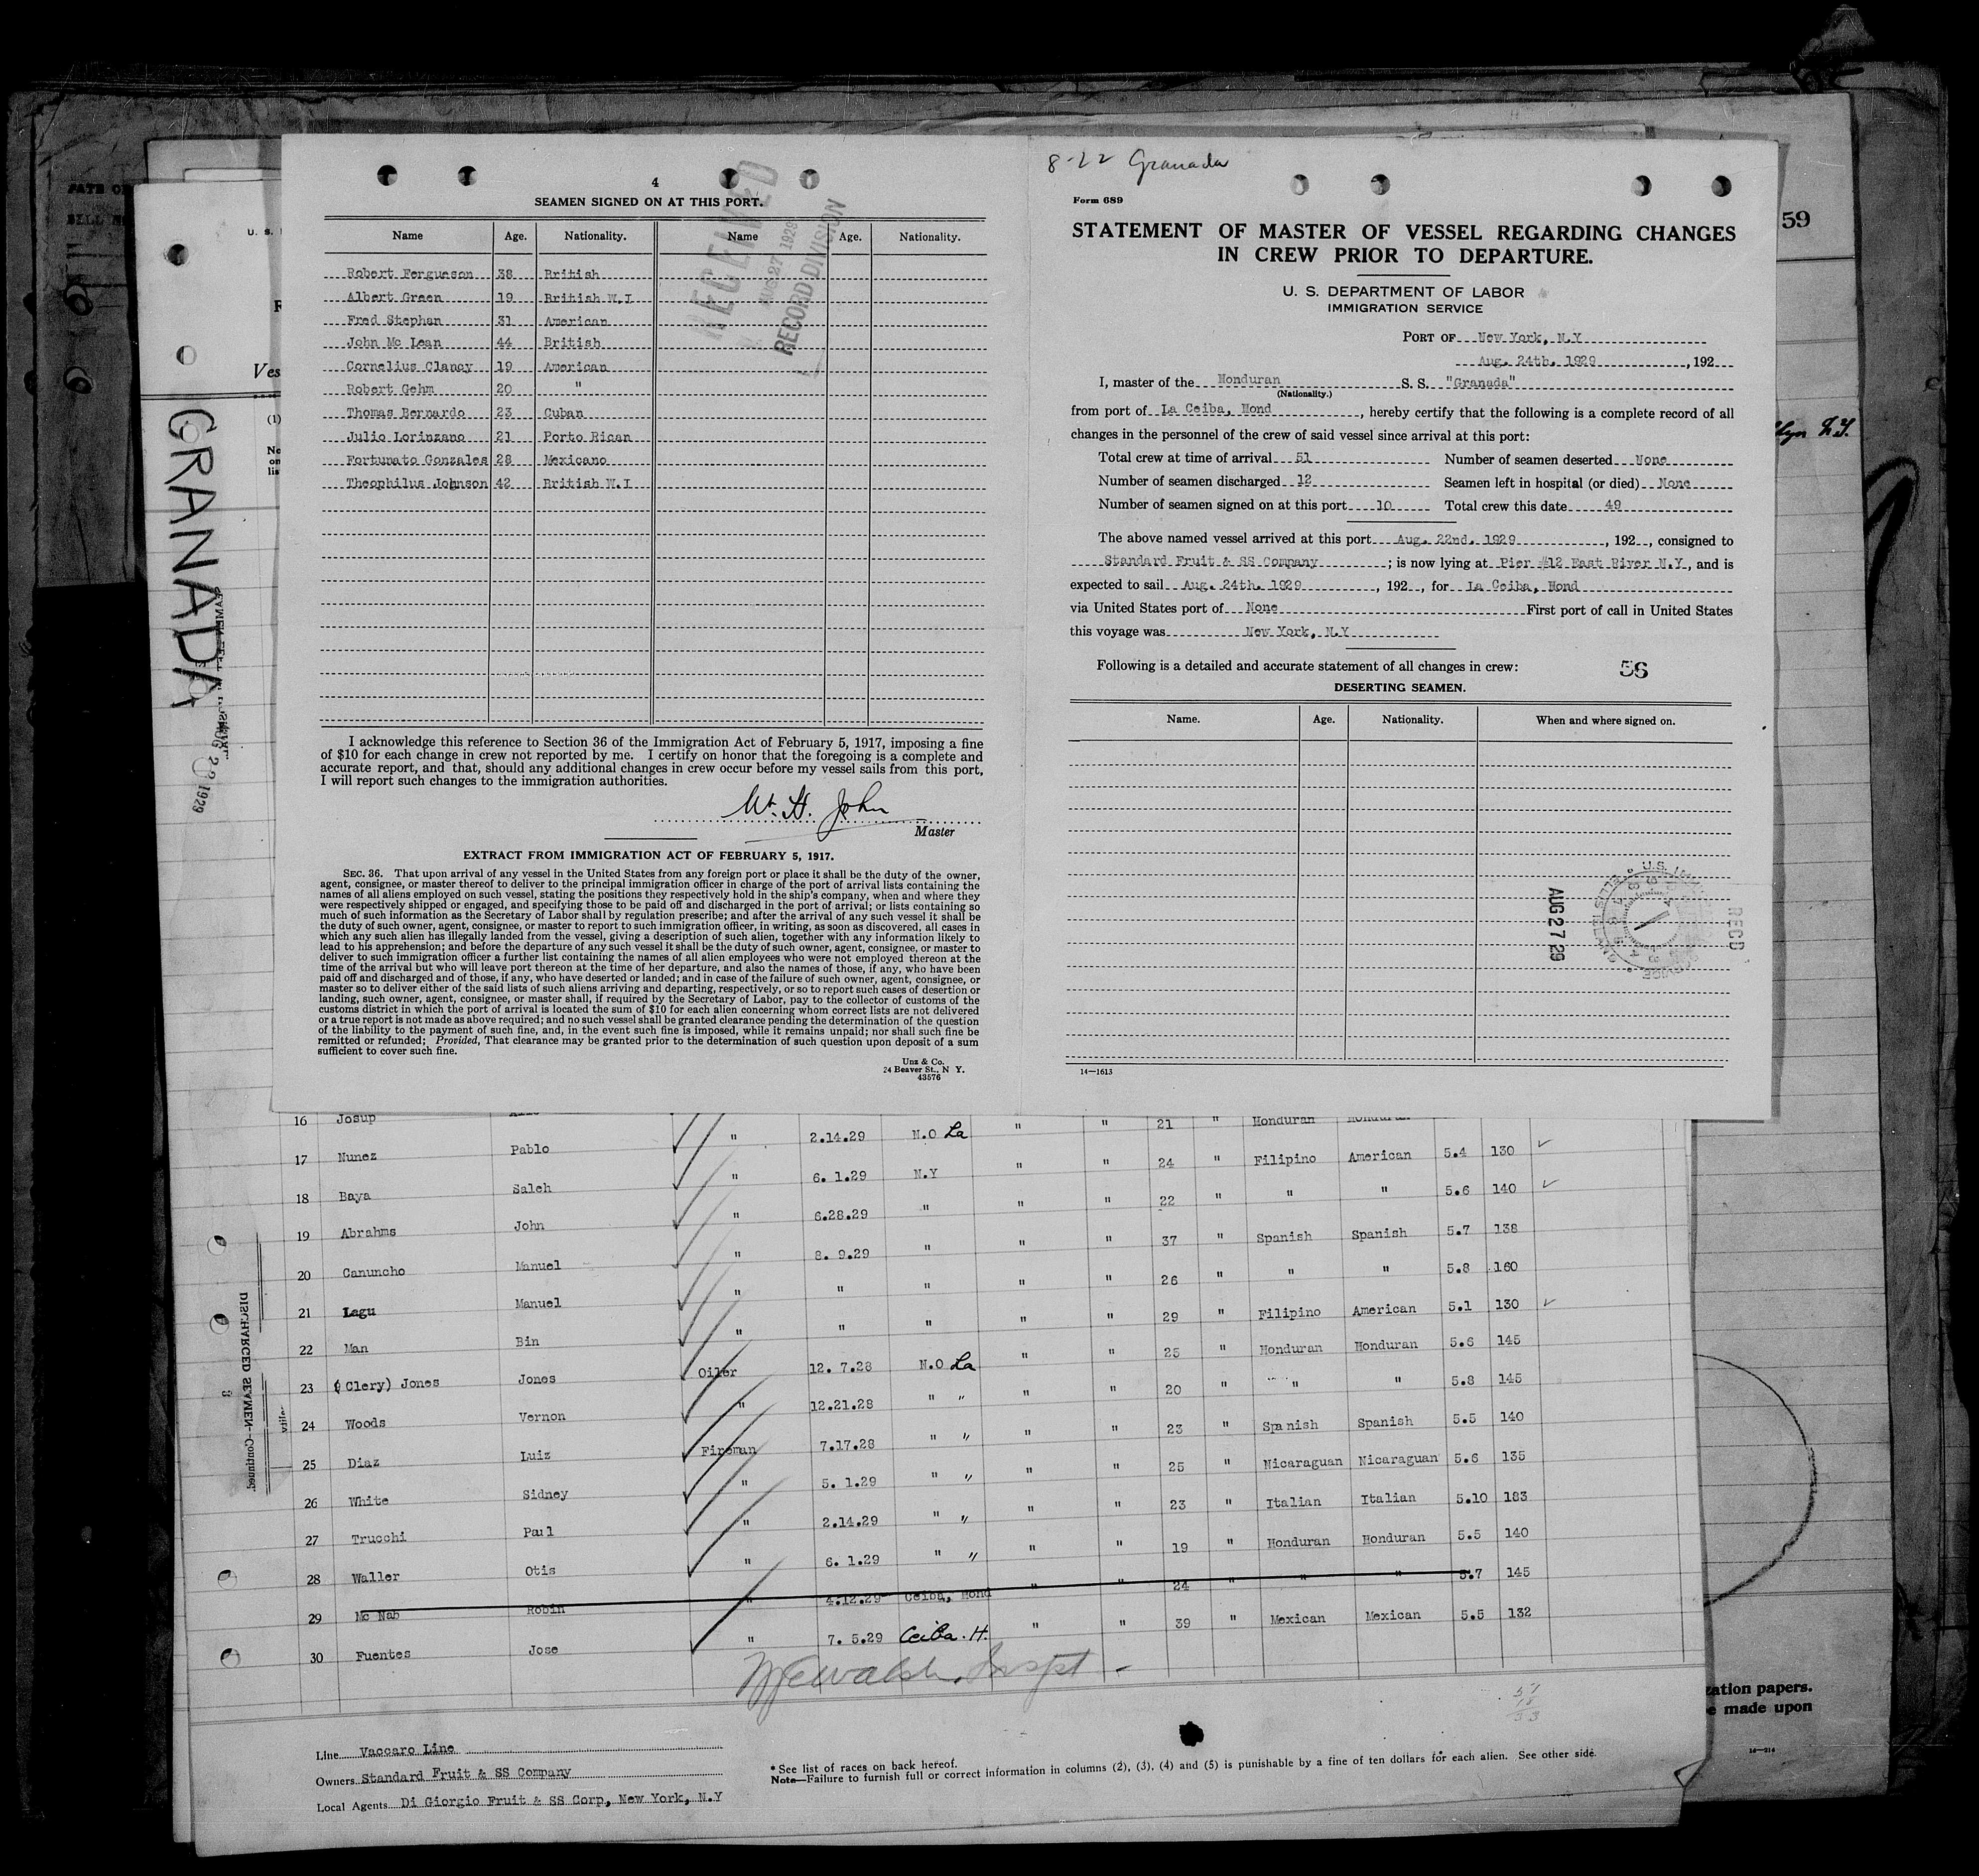 4
SEAMEN SIGNED ON AT THIS PORT.
Name Age. Nationality. Name Age. Nationality.
Robert Fergueson 38 British
Albert Green 19 British W.I
Fred Stephan 31 American
John Mc Lean 44 British
Cornelius Clancy 19 American
Robert Gehm 20 "
Thomas Bernardo 23 Cuban
Julio Lorinzano 21 Porto Rican
Fortunato Gonzales 28 Mexicano
Theophilus Johnson 42 British W.I
RECEIVED
AUG 27 1929
RECORD DIVISION
I acknowledge this reference to Section 36 of the Immigration Act of February 5, 1917, imposing a fine
of $10 for each change in crew not reported by me. I certify on honor that the foregoing is a complete and
accurate report, and that, should any additional changes in crew occur before my vessel sails from this port,
I will report such changes to the immigration authorities.
Wt. H. John
Master
EXTRACT FROM IMMIGRATION ACT OF FEBRUARY 5, 1917.
SEC. 36. That upon arrival of any vessel in the United States from any foreign port or place it shall be the duty of the owner,
agent, consignee, or master thereof to deliver to the principal immigration officer in charge of the port of arrival lists containing the
names of all aliens employed on such vessel, stating the positions they respectively hold in the ship's company, when and where they
were respectively shipped or engaged, and specifying those to be paid off and discharged in the port of arrival; or lists containing so
much of such information as the Secretary of Labor shall by regulation prescribe; and after the arrival of any such vessel it shall be
the duty of such owner, agent, consignee, or master to report to such immigration officer, in writing, as soon as discovered, all cases in
which any such alien has illegally landed from the vessel, giving a description of such alien, together with any information likely to
lead to his apprehension; and before the departure of any such vessel it shall be the duty of such owner, agent, consignee, or master to
deliver to such immigration officer a further list containing the names of all alien employees who were not employed thereon at the
time of the arrival but who will leave port thereon at the time of her departure, and also the names of those, if any, who have been
paid off and discharged and of those, if any, who have deserted or landed; and in case of the failure of such owner, agent, consignee, or
master so to deliver either of the said lists of such aliens arriving and departing, respectively, or so to report such cases of desertion or
landing, such owner, agent, consignee, or master shall, if required by the Secretary of Labor, pay to the collector of customs of the
customs district in which the port of arrival is located the sum of $10 for each alien concerning whom correct lists are not delivered
or a true report is not made as above required; and no such vessel shall be granted clearance pending the determination of the question
of the liability to the payment of such fine, and, in the event such fine is imposed, while it remains unpaid; nor shall such fine be
remitted or refunded; Provided, That clearance may be granted prior to the determination of such question upon deposit of a sum
sufficient to cover such fine.
Unz & Co.
24 Beaver St., N Y.
43576
8-22 Granada
Form 689
STATEMENT OF MASTER OF VESSEL REGARDING CHANGES
IN CREW PRIOR TO DEPARTURE.
U. S. DEPARTMENT OF LABOR
IMMIGRATION SERVICE
PORT OF New York, N.Y
Aug. 24th. 1929, 192
I, master of the Honduran S. S. "Granada"
(Nationality.)
from port of La Ceiba, Hond, hereby certify that the following is a complete record of all
changes in the personnel of the crew of said vessel since arrival at this port:
Total crew at time of arrival 51 Number of seamen deserted None
Number of seamen discharged 12 Seamen left in hospital (or died) None
Number of seamen signed on at this port 10 Total crew this date 49
The above named vessel arrived at this port Aug. 22nd. 1929, 192, consigned to
Standard Fruit & SS Company; is now lying at Pier #12 East River N.Y, and is
expected to sail Aug. 24th. 1929, 192, for La Ceiba, Hond
via United States port of None First port of call in United States
this voyage was New York, N.Y
Following is a detailed and accurate statement of all changes in crew: 56
DESERTING SEAMEN.
Name. Age. Nationality. When and where signed on.
AUG 27 29
RECD
14—1613
59
GRANADA
1929
DISCHARGED SEAMEN—Continued.
3
16 Josup " 21 " Honduran
17 Nunez Pablo " 2.14.29 N.O La " " 24 " Filipino American 5.4 130
18 Baya Saleh " 6. 1.29 N.Y " " 22 " " " 5.6 140
19 Abrahms John " 6.28.29 " " " 37 " Spanish Spanish 5.7 138
20 Canuncho Manuel " 8. 9.29 " " " 26 " " " 5.8 160
21 Lagu Manuel " " " " " 29 " Filipino American 5.1 130
22 Man Bin " " " " " 25 " Honduran Honduran 5.6 145
23 (Clery) Jones Jones Oiler 12. 7.28 N.O La " " 20 " " " 5.8 145
24 Woods Vernon " 12.21.28 " " " " 23 " Spanish Spanish 5.5 140
25 Diaz Luiz Fireman 7.17.28 " " " " 25 " Nicaraguan Nicaraguan 5.6 135
26 White Sidney " 5. 1.29 " " " " 23 " Italian Italian 5.10 183
27 Trucchi Paul " 2.14.29 " " " " 19 " Honduran Honduran 5.5 140
28 Waller Otis " 6. 1.29 " " " " 24 " " " 5.7 145
29 Mc Nab Robin " 4.12.29 Ceiba, Hond " " 39 " Mexican Mexican 5.5 132
30 Fuentes Jose " 7. 5.29 Ceiba. H.
Walsh. Inspt
Line Vaccaro Line
Owners Standard Fruit & SS Company
Local Agents Di Giorgio Fruit & SS Corp, New York, N.Y
* See list of races on back hereof.
Note—Failure to furnish full or correct information in columns (2), (3), (4) and (5) is punishable by a fine of ten dollars for each alien. See other side.
papers.
made upon